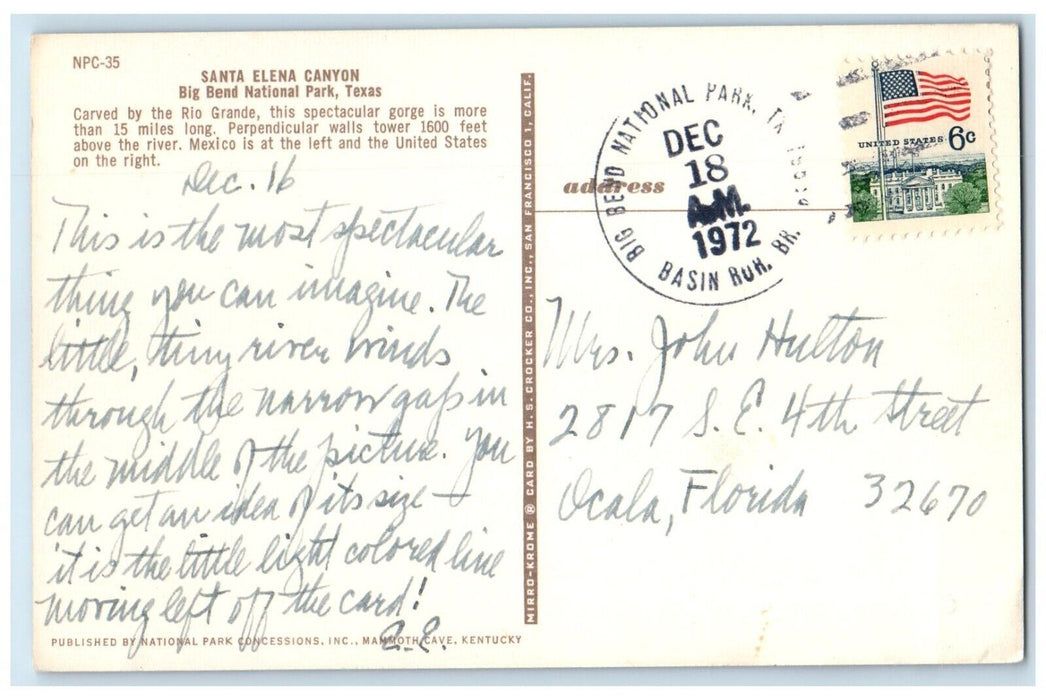 NPC-35
SANTA ELENA CANYON
Big Bend National Park, Texas
Carved by the Rio Grande, this spectacular gorge is more
than 15 miles long. Perpendicular walls tower 1600 feet
above the river. Mexico is at the left and the United States
on the right.
Dec. 16
This is the most spectacular
thing you can imagine. The
little, tiny river winds
through the narrow gap in
the middle of the picture. You
can get an idea of its size –
it is the little light colored line
moving left off the card!
PUBLISHED BY NATIONAL PARK CONCESSIONS, INC., MAMMOTH CAVE, KENTUCKY
MIRRO-KROME ® CARD BY H. S. CROCKER CO., INC., SAN FRANCISCO 1, CALIF.
address
BIG BEND NATIONAL PARK, TX
DEC
18
A.M.
1972
BASIN RUR. BR.
UNITED STATES 6c
Mrs. John Hulton
2817 S.E. 4th Street
Ocala, Florida 32670